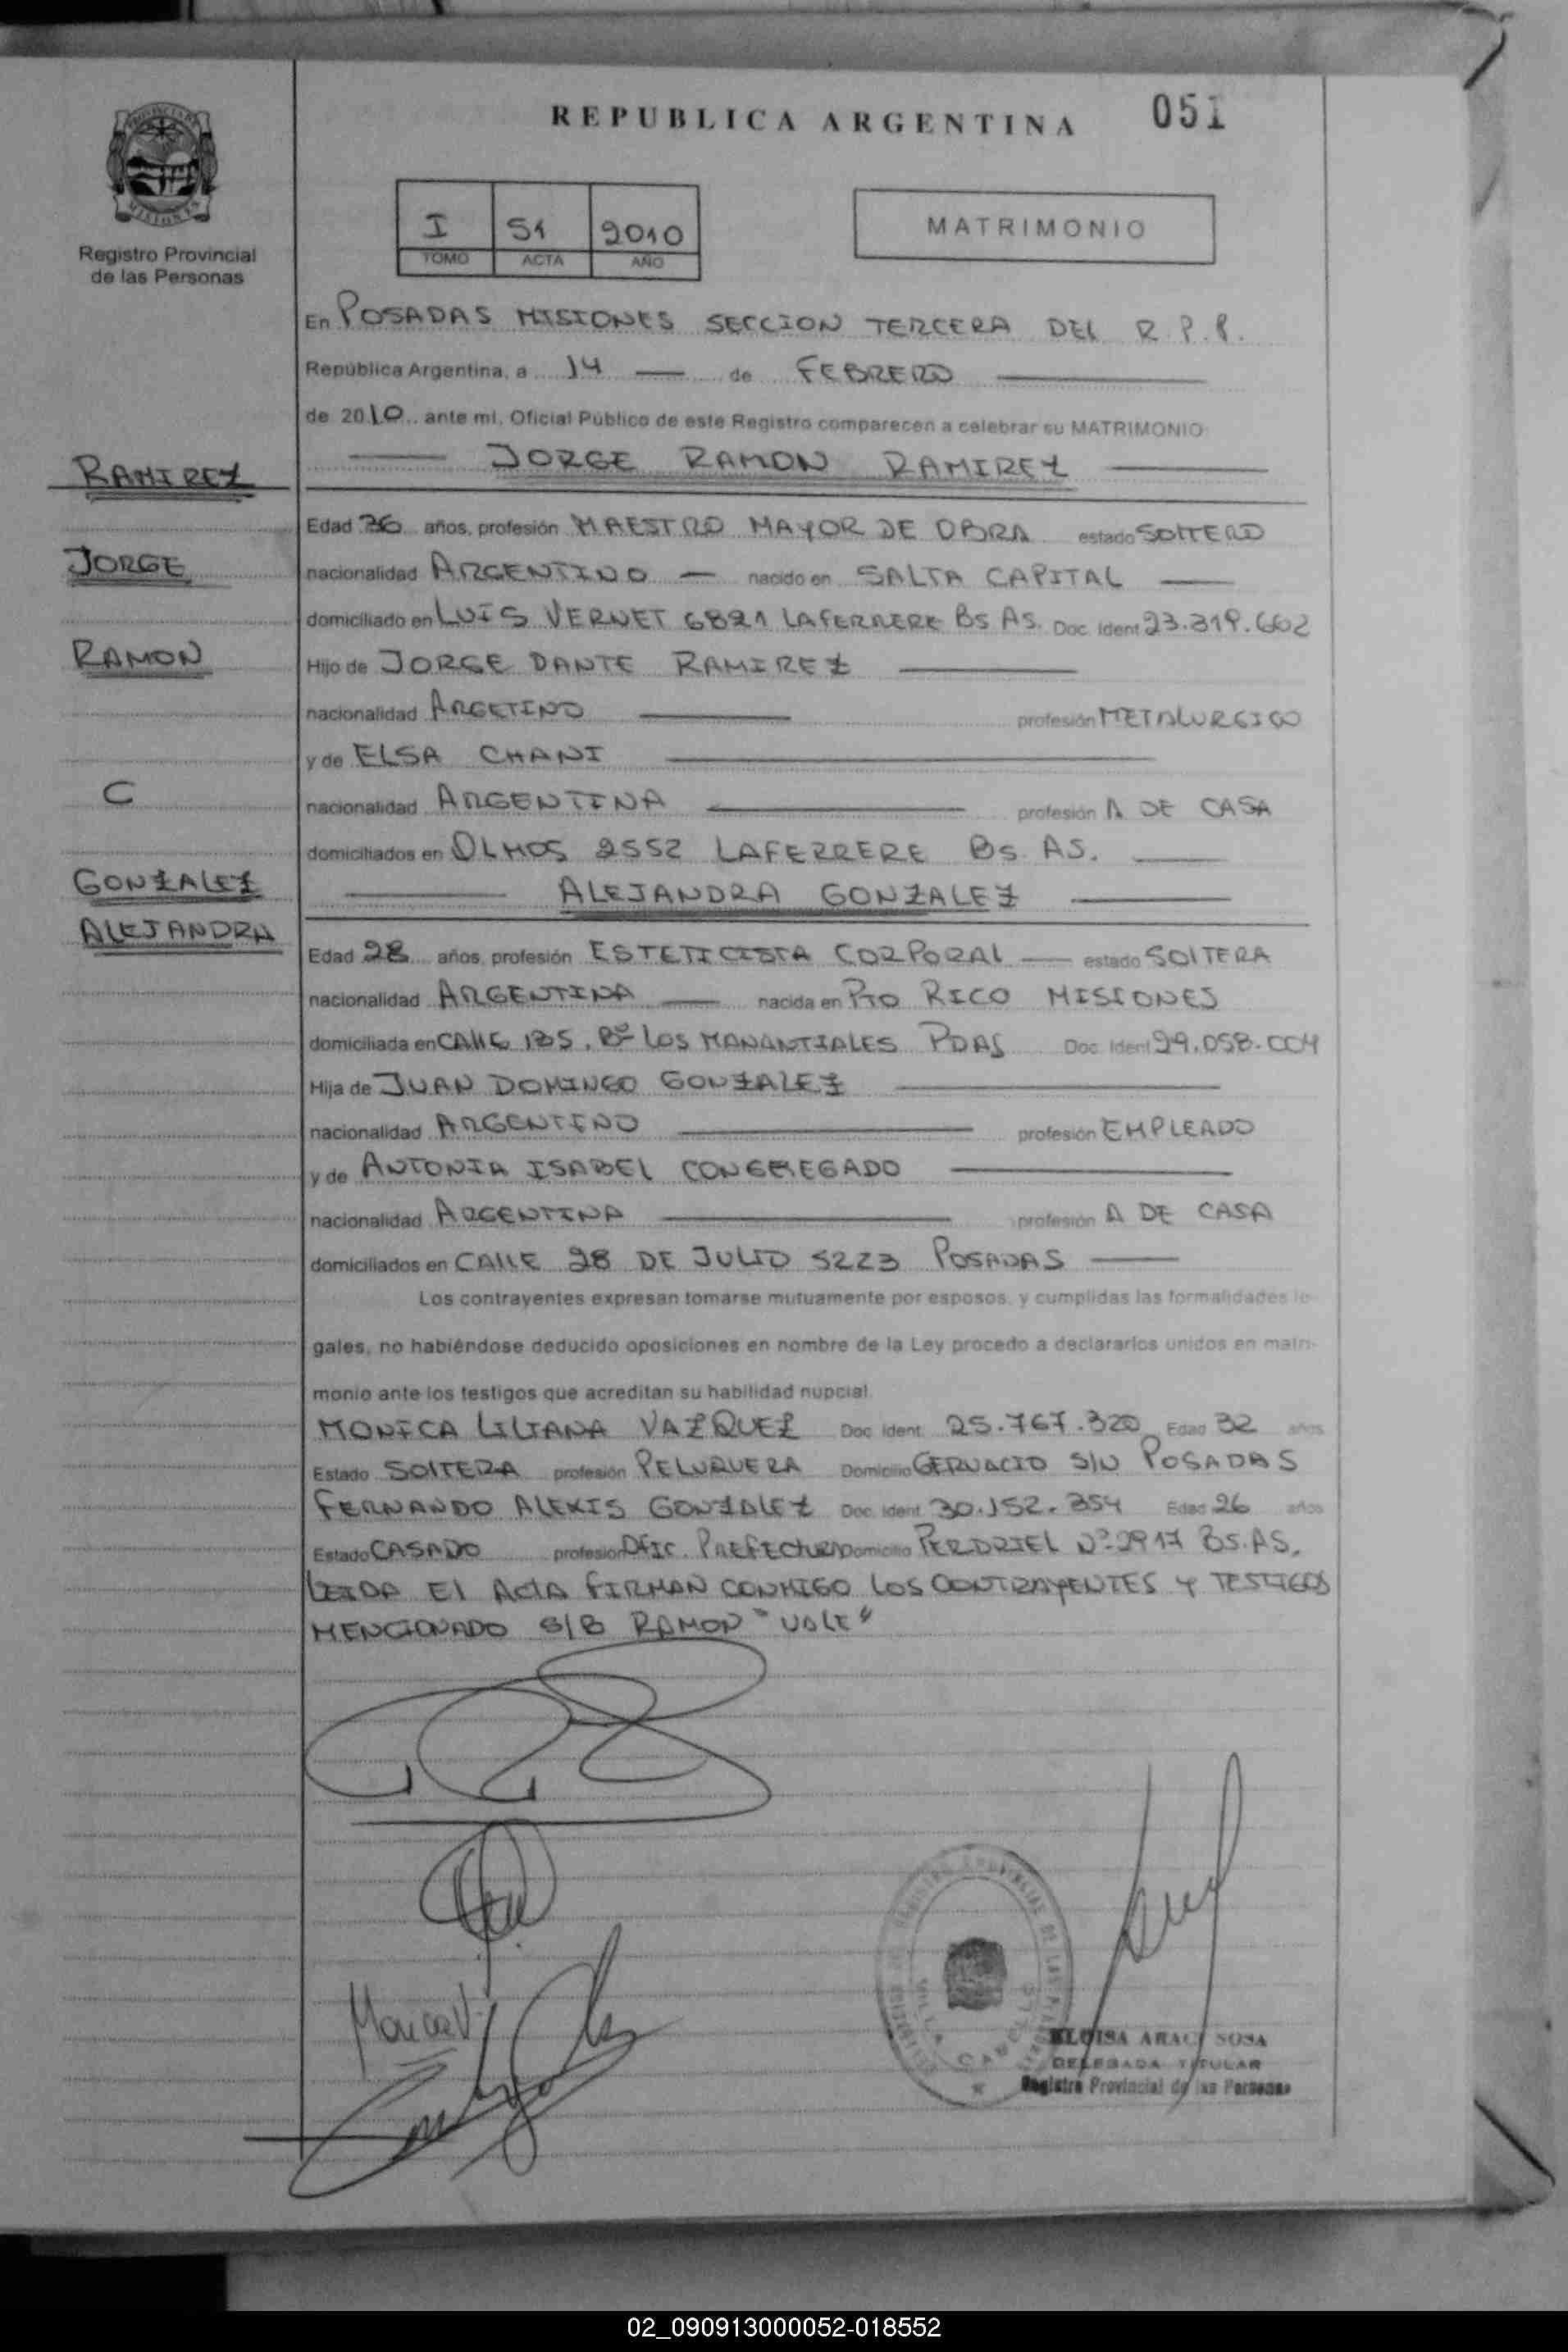 REPUBLICA ARGENTINA 051
Registro Provincial
de las Personas
I 51 2010
TOMO ACTA AÑO
MATRIMONIO
En POSADAS MISIONES SECCION TERCERA DEL R.P.P.
República Argentina, a 14 de FEBRERO
de 2010 ante mí, Oficial Público de este Registro comparecen a celebrar su MATRIMONIO
JORGE RAMON RAMIREZ
RAMIREZ
Edad 36 años, profesión MAESTRO MAYOR DE OBRA estado SOLTERO
JORGE
nacionalidad ARGENTINO nacido en SALTA CAPITAL
domiciliado en LUIS VERNET 6821 LAFERRERE BS AS. Doc. Ident 23.319.662
RAMON
Hijo de JORGE DANTE RAMIREZ
nacionalidad ARGETINO profesión METALURGICO
y de ELSA CHANI
C
nacionalidad ARGENTINA profesión A DE CASA
domiciliados en OLMOS 2552 LAFERRERE BS. AS.
GONZALEZ
ALEJANDRA GONZALEZ
ALEJANDRA
Edad 28 años, profesión ESTETICISTA CORPORAL estado SOLTERA
nacionalidad ARGENTINA nacida en PTO RICO MISIONES
domiciliada en CALLE 185, Bº LOS MANANTIALES PDAS Doc. Ident 29.058.004
Hija de JUAN DOMINGO GONZALEZ
nacionalidad ARGENTINO profesión EMPLEADO
y de ANTONIA ISABEL CONGREGADO
nacionalidad ARGENTINA profesión A DE CASA
domiciliados en CALLE 28 DE JULIO 5223 POSADAS
Los contrayentes expresan tomarse mutuamente por esposos, y cumplidas las formalidades le-
gales, no habiéndose deducido oposiciones en nombre de la Ley procedo a declararlos unidos en matri-
monio ante los testigos que acreditan su habilidad nupcial.
MONICA LILIANA VAZQUEZ Doc. Ident. 25.767.320 Edad 32 años
Estado SOLTERA profesión PELUQUERA Domicilio GERVACIO S/N POSADAS
FERNANDO ALEXIS GONZALEZ Doc. Ident. 30.152.354 Edad 26 años
Estado CASADO profesión OFIC. PREFECTURA Domicilio PERDRIEL Nº 2917 BS.AS.
LEIDA EL ACTA FIRMAN CONMIGO LOS CONTRAYENTES Y TESTIGOS
MENCIONADO S/B RAMON "VALE"
Monica V.
REGISTRO PROVINCIAL DE LAS PERSONAS
ELOISA ARACI SOSA
DELEGADA TITULAR
Registro Provincial de las Personas
02_090913000052-018552